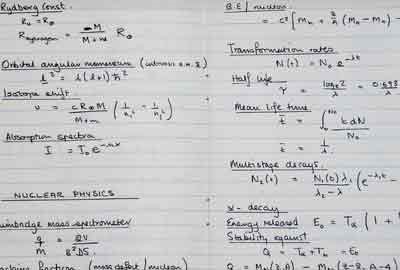 Rydberg Const.
R∞ = R∞
R Hydrogen = M / M+m R∞
Orbital angular momentum (intrinsic a.m. s)
l² = l(l+1) ħ²
Isotope shift.
υ = c R∞ M / M+m ( 1/n₁² - 1/n₂² )
Absorption spectra
I = I₀ e
NUCLEAR PHYSICS
Bainbridge mass spectrometer
q/m = 2V / B²DS
fraction (mass defect / nucleon)
B.E / nucleon
= c² [ Mn + Z/A (MH - Mn) -
Transformation rates.
N(t) = N₀ e^-λt
Half life
τ = loge2 / λ = 0.693 / λ
Mean life time
t̄ = ∫ t dN / N₀
t̄ = 1/λ
Multistage decays.
N₂(t) = N₁(0) λ₁ / λ₂ - λ₁ ( e^-λ₁t -
α - decay
Energy released E₀ = Tα ( 1 +
Stability against
Q = Tα + Tb = E₀